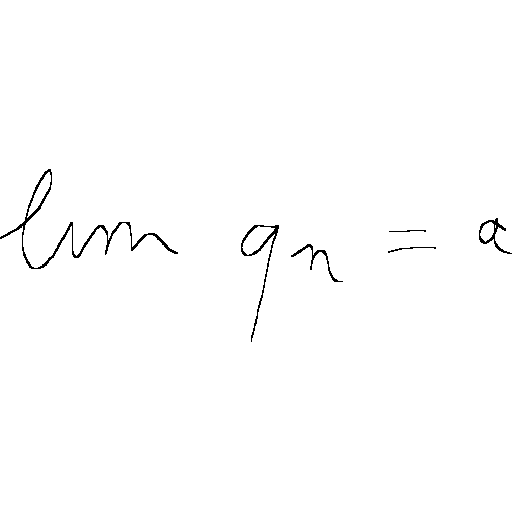 lim q_n = a